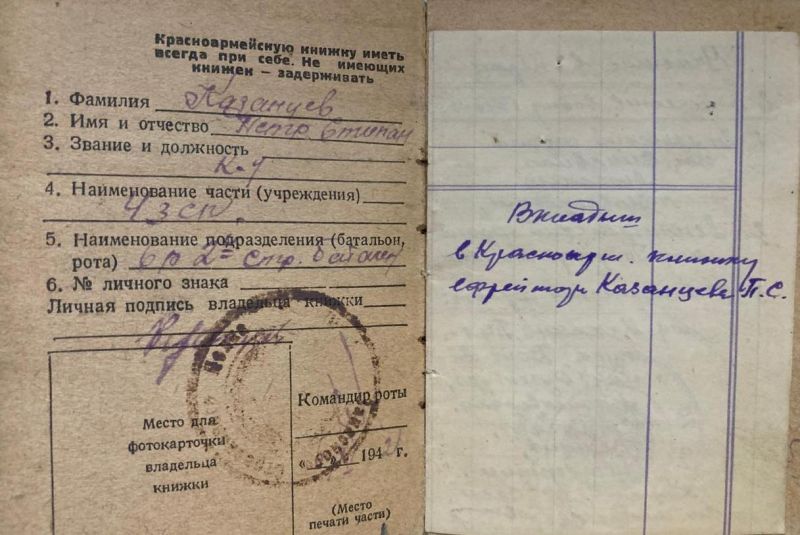 Красноармейскую книжку иметь
всегда при себе. Не имеющих
книжек — задерживать
1. Фамилия Казанцев
2. Имя и отчество Петр Степан
3. Звание и должность
К-ц
4. Наименование части (учреждения)
4 зсп.
5. Наименование подразделения (батальон,
рота) 6р 2й стр. батальон
6. № личного знака
Личная подпись владельца книжки
Место для
фотокарточки
владельца
книжки
Командир роты
« » 194 г.
(Место
печати части)
Вкладыш
в Красноарм. книжку
ефрейтора Казанцева П.С.